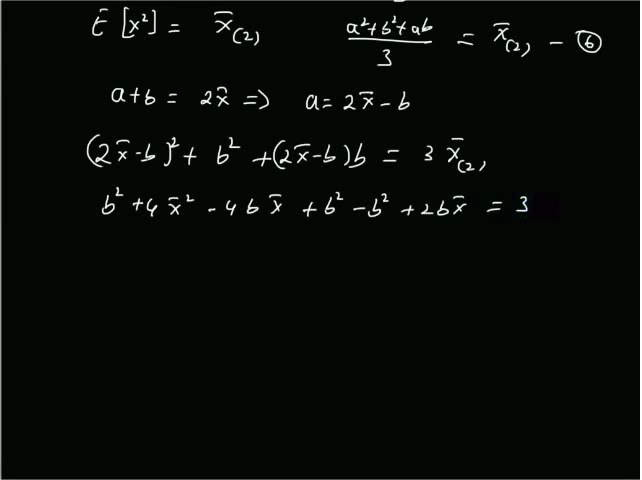 E [x²] = x̄₍₂₎    (a²+b²+ab)/3 = x̄₍₂₎ – ⑥
a+b = 2x̄ => a = 2x̄ – b
(2x̄-b)² + b² + (2x̄-b)b = 3 x̄₍₂₎
b² + 4x̄² - 4bx̄ + b² - b² + 2bx̄ = 3